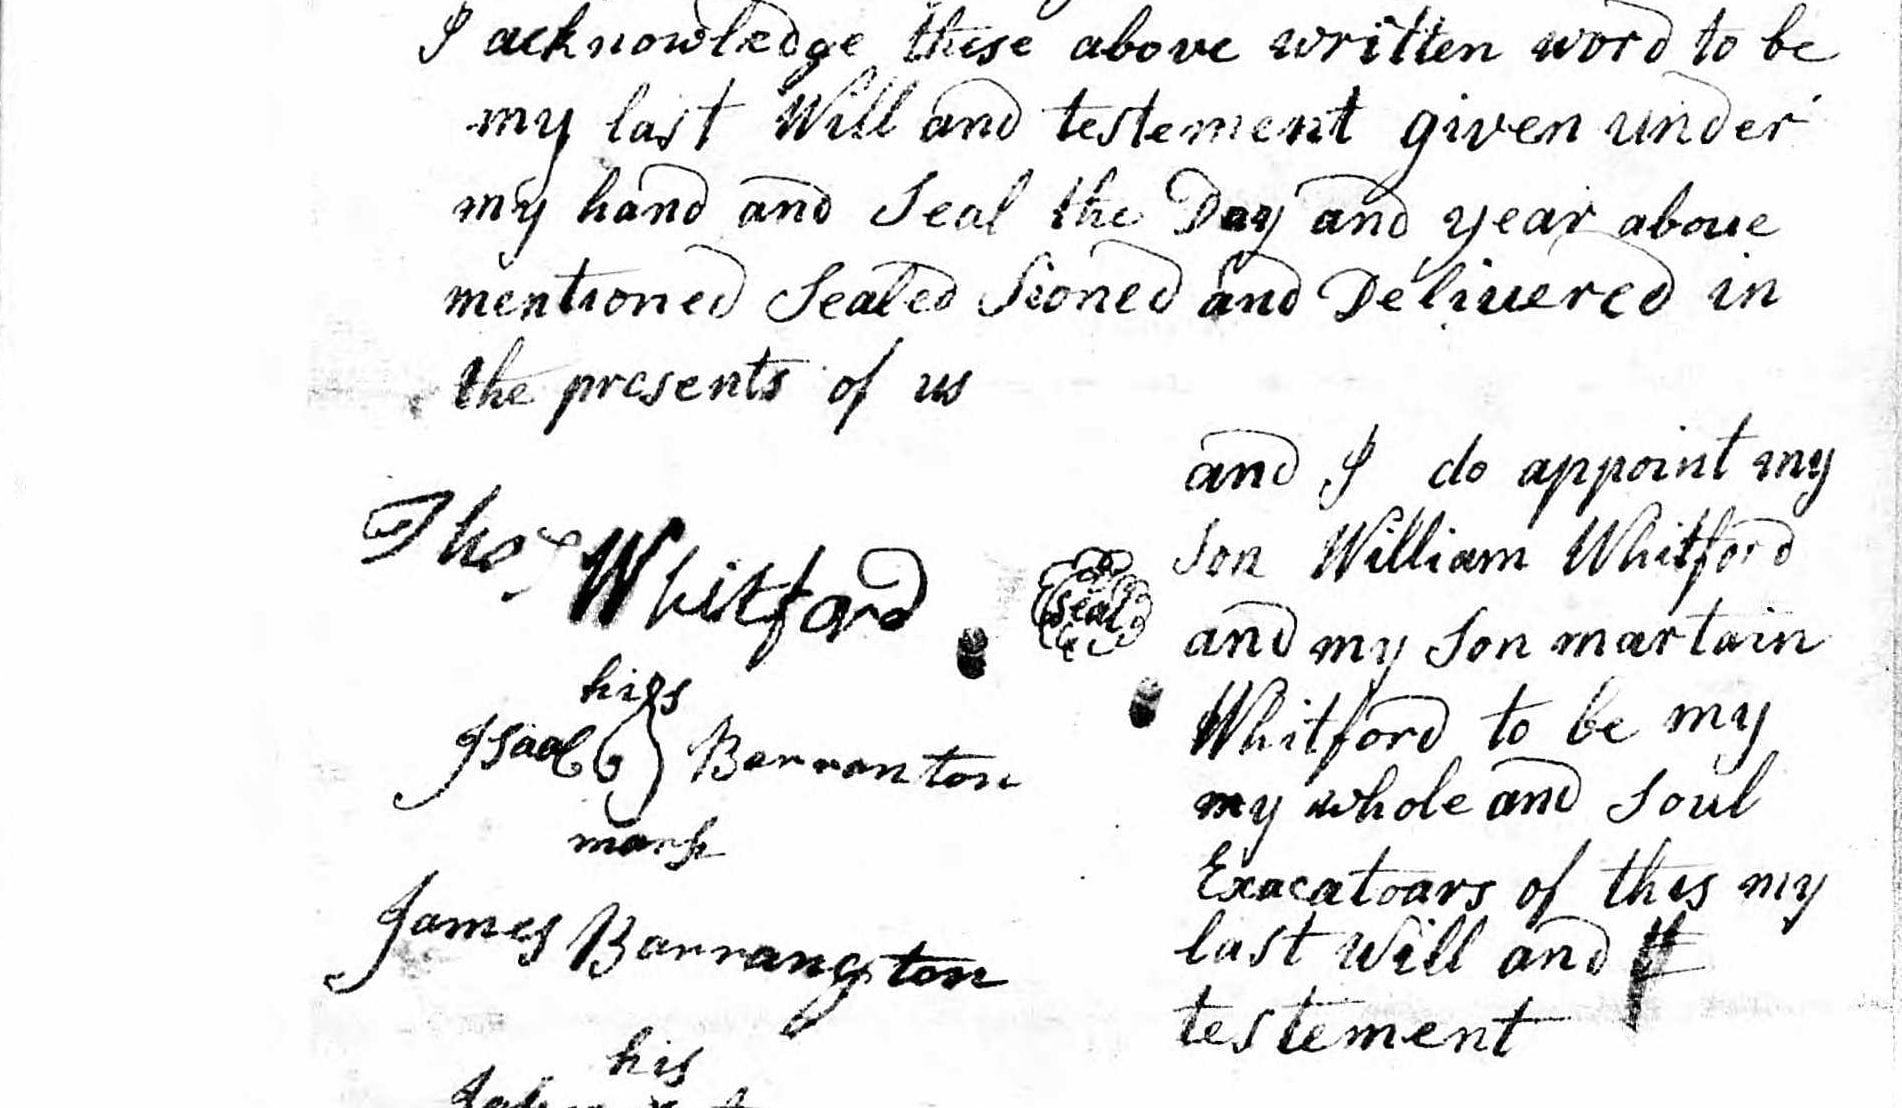 I acknowledge these above written word to be
my last Will and testement given under
my hand and Seal the Day and year above
mentioned Sealed Sioned and Delivered in
the presents of us
Thos Whitford
Seal
his
Isaac Barranton
mark
James Barrangton
his
and I do appoint my
Son William Whitford
and my Son martain
Whitford to be my
my whole and Soul
Exacatoars of this my
last Will and
testement